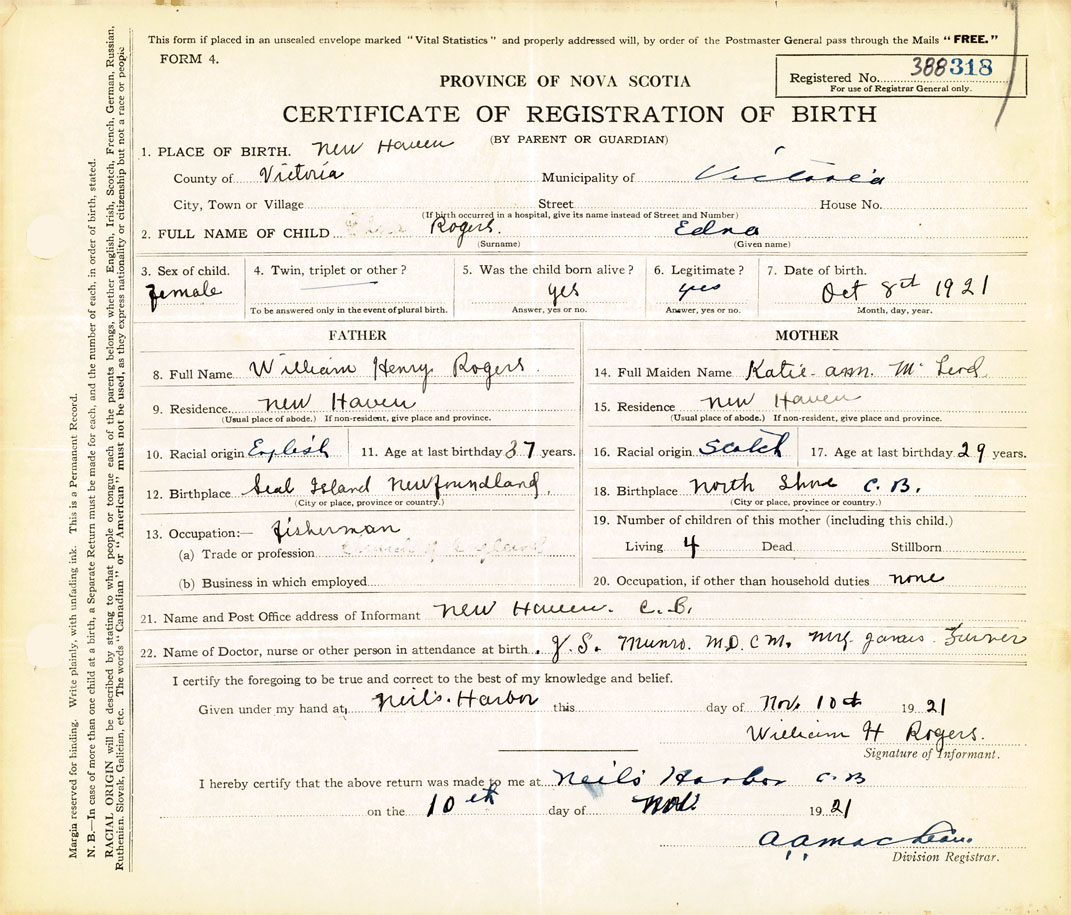 This form if placed in an unsealed envelope marked "Vital Statistics" and properly addressed will, by order of the Postmaster General pass through the Mails "FREE."
FORM 4.
Registered No. 388318
For use of Registrar General only.
PROVINCE OF NOVA SCOTIA
CERTIFICATE OF REGISTRATION OF BIRTH
(BY PARENT OR GUARDIAN)
1. PLACE OF BIRTH. New Haven
County of Victoria Municipality of Victoria
City, Town or Village Street House No.
(If birth occurred in a hospital, give its name instead of Street and Number)
2. FULL NAME OF CHILD Rogers. Edna
(Surname) (Given name)
3. Sex of child. 4. Twin, triplet or other? 5. Was the child born alive? 6. Legitimate? 7. Date of birth.
female yes yes Oct 8st 1921
To be answered only in the event of plural birth. Answer, yes or no. Answer, yes or no. Month, day, year.
FATHER
8. Full Name William Henry Rogers
9. Residence New Haven
(Usual place of abode.) If non-resident, give place and province.
10. Racial origin English 11. Age at last birthday 37 years.
12. Birthplace Seal Island Newfoundland.
(City or place, province or country.)
13. Occupation:— fisherman
(a) Trade or profession Church of England
(b) Business in which employed
MOTHER
14. Full Maiden Name Katie ann. Mc Leod
15. Residence New Haven
(Usual place of abode.) If non-resident, give place and province.
16. Racial origin Scotch 17. Age at last birthday 29 years.
18. Birthplace North Shore C. B.
(City or place, province or country.)
19. Number of children of this mother (including this child.)
Living 4 Dead Stillborn
20. Occupation, if other than household duties none
21. Name and Post Office address of Informant New Haven. C. B.
22. Name of Doctor, nurse or other person in attendance at birth. J. S. Munro. M.D. C.M. Mrs. James Turner
I certify the foregoing to be true and correct to the best of my knowledge and belief.
Given under my hand at Neil's Harbor this day of Nov. 10th 1921
William H Rogers.
Signature of Informant.
I hereby certify that the above return was made to me at Neils Harbor C. B
on the 10th day of Nov. 1921
A A MacLean
Division Registrar.
Margin reserved for binding. Write plainly, with unfading ink. This is a Permanent Record.
N. B.—In case of more than one child at a birth, a Separate Return must be made for each, and the number of each, in order of birth, stated.
RACIAL ORIGIN will be described by stating to what people or tongue each of the parents belongs, whether English, Irish, Scotch, French, German, Russian,
Ruthenian, Slovak, Galician, etc. The words "Canadian" or "American" must not be used, as they express nationality or citizenship but not a race or people